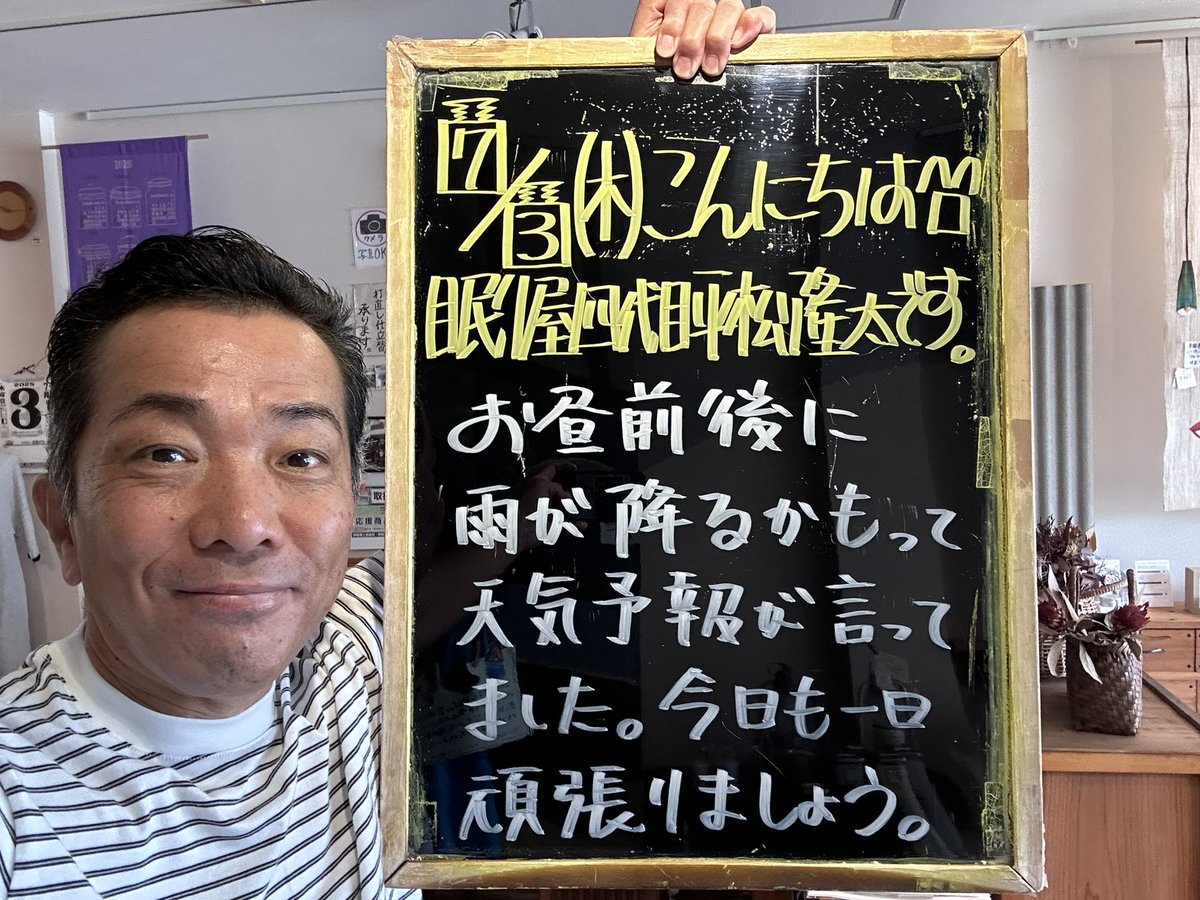 7/3(木)こんにちは
眠屋四代目平松隆太です。
お昼前後に
雨が降るかもって
天気予報が言って
ました。今日も一日
頑張りましょう。
カメラ
写真OK
打直し仕立替
承ります。
2025
3